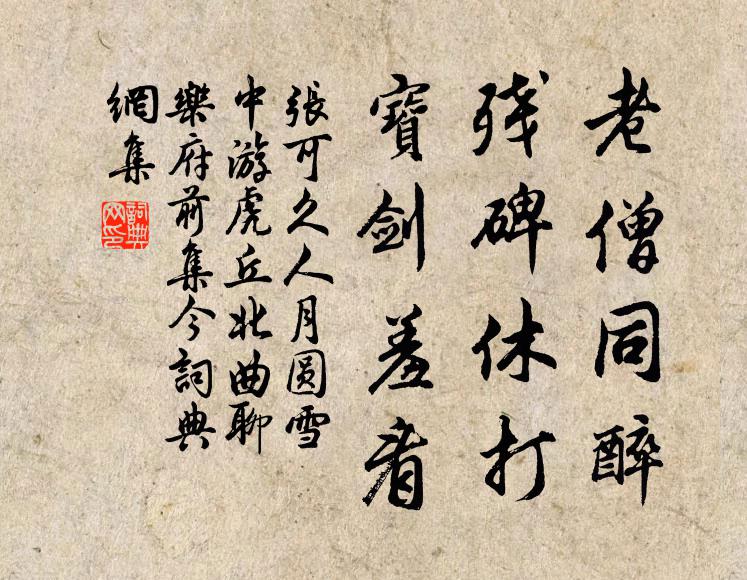 老僧同醉
殘碑休打
寶劍羞看
張可久人月圓雪
中游虎丘北曲聊
樂府前集今詞典
網集
詞典
网印